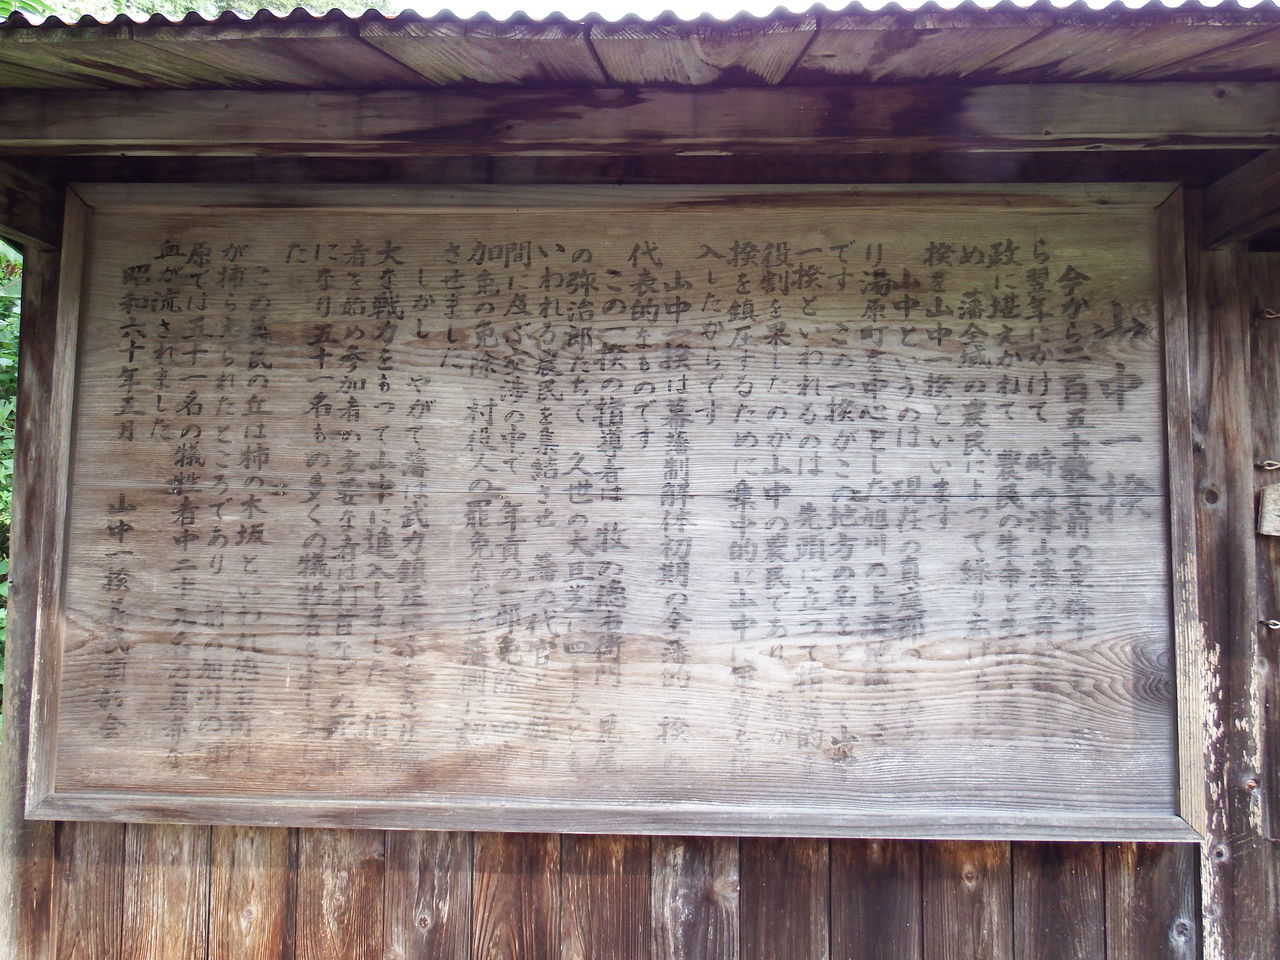 山中一揆
今から二百五十数年前の
ら翌年にかけて 時の津山藩の
政に堪えかねて 農民の生命と
め 藩全域の農民によって繰り
揆を山中一揆といいます
山中というのは 現在の真庭郡の
り湯原町を中心とした旭川の上
です この一揆がこの地方の名をとって山
一揆といわれるのは 先頭に立って 的
役割を果したのが山中の農民であり 藩が
揆を鎮圧するために集中的に山中に
入したからです
山中一揆は幕藩制解体初期の全藩的一揆の
代表的なものです
この一揆の指導者は 牧の徳右衛門 見尾
の弥治郎たちで 久世の大旦芝に四千人と
いわれる農民を集結させ 藩の代官
間に及ぶ交渉の中で 年貢の
加免の免除 村役人の罷免などを藩側に
させました
しかし やがて藩は武力鎮圧に
大な戦力をもって山中に進入しました 指導
者を始め参加者の主要な者は打首などの
になり五十一名もの多くの犠牲者を
た
この義民の丘は柿の木坂といわれ徳右衛門
が捕らえられたところであり 前の旭川の
原では五十一名の犠牲者中二十
血が流されました
昭和六十年五月 山中一揆義民顕彰会